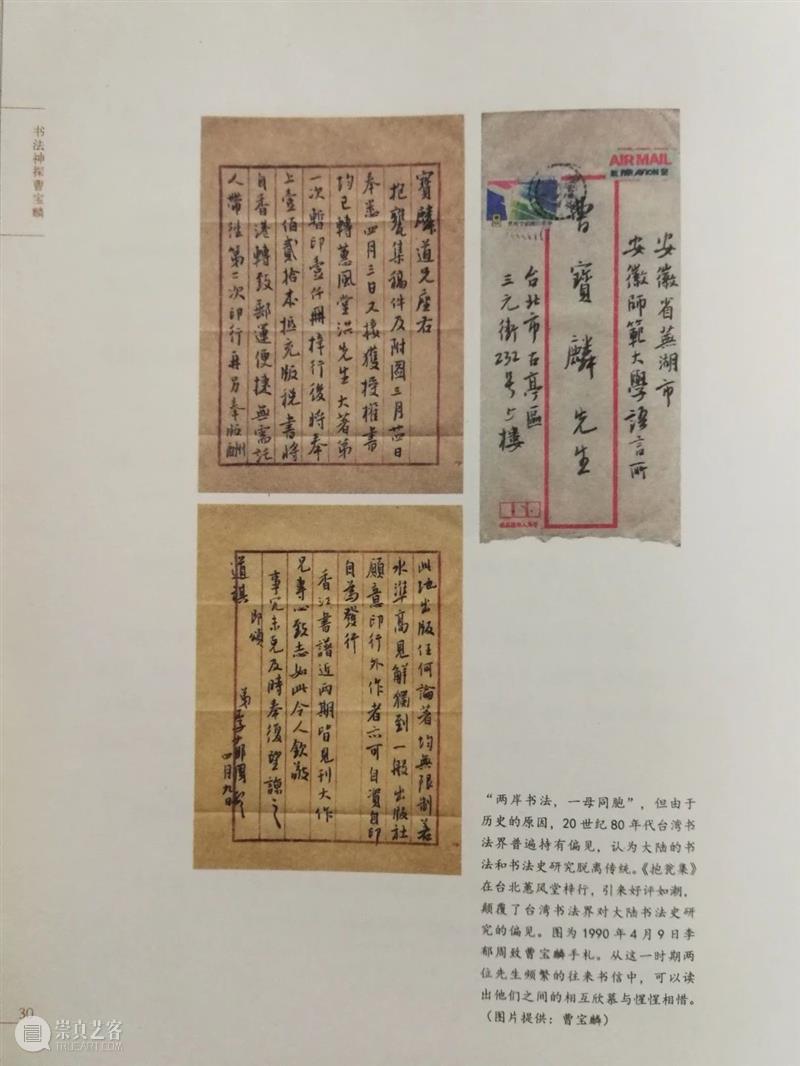 书法神探曹宝麟
寶麟道兄座右
抱甕集稿件及附圖三月廿日
奉悉四月三日又接獲授權書
均已轉蕙風堂洪先生大著第
一次暫印壹仟冊梓行後將奉
上壹佰貳拾本抵充版稅書將
自香港轉致郵運便捷無需託
人帶往第二次印行再另奉版酬
AIR MAIL
PAR AVION
安徽省蕪湖市
安徽師範大學語言所
曹寶麟先生
台北市古亭區
三元街232号5楼
此地出版任何論著均無限制若
水準高見解獨到一般出版社
願意印行外作者亦可自資自印
自為發行
香江書譜近兩期皆見刊大作
兄專心致志如此令人欽敬
事冗未克及時奉復望諒之
即頌
道祺
弟李郁周
四月九日
“两岸书法，一母同胞”，但由于
历史的原因，20世纪80年代台湾书
法界普遍持有偏见，认为大陆的书
法和书法史研究脱离传统。《抱瓮集》
在台北蕙风堂梓行，引来好评如潮，
颠覆了台湾书法界对大陆书法史研
究的偏见。图为1990年4月9日李
郁周致曹宝麟手札。从这一时期两
位先生频繁的往来书信中，可以读
出他们之间的相互欣慕与惺惺相惜。
（图片提供：曹宝麟）
30
崇真艺客